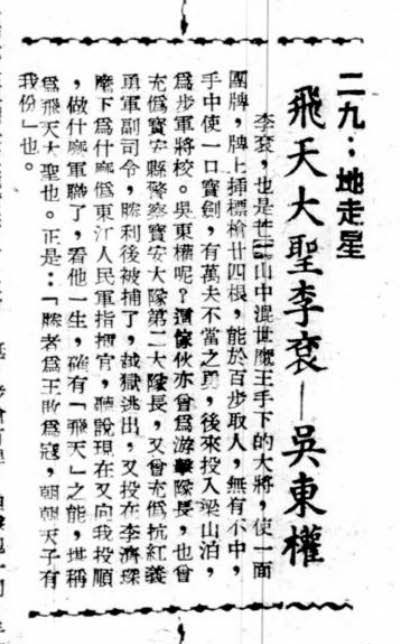 二九：地走星
飛天大聖李袞—吳東權
李袞，也是芒碭山中混世魔王手下的大將，使一面
團牌，牌上插標槍廿四根，能於百步取人，無有不中，
手中使一口寶劍，有萬夫不當之勇，後來投入梁山泊，
爲步軍將校。吳東權呢？這傢伙亦曾爲游擊隊長，也曾
充僞寶安縣警察寶安大隊第二大隊長，又曾充僞抗紅義
勇軍副司令，勝利後被捕了，越獄逃出，又投在李濟琛
麾下爲什麼僞東江人民軍指揮官，聽說現在又向我投順
，做什麼軍聯了，看他一生，確有「飛天」之能，堪稱
爲飛天大聖也。正是：「勝者爲王敗爲寇，朝朝天子有
我份」也。